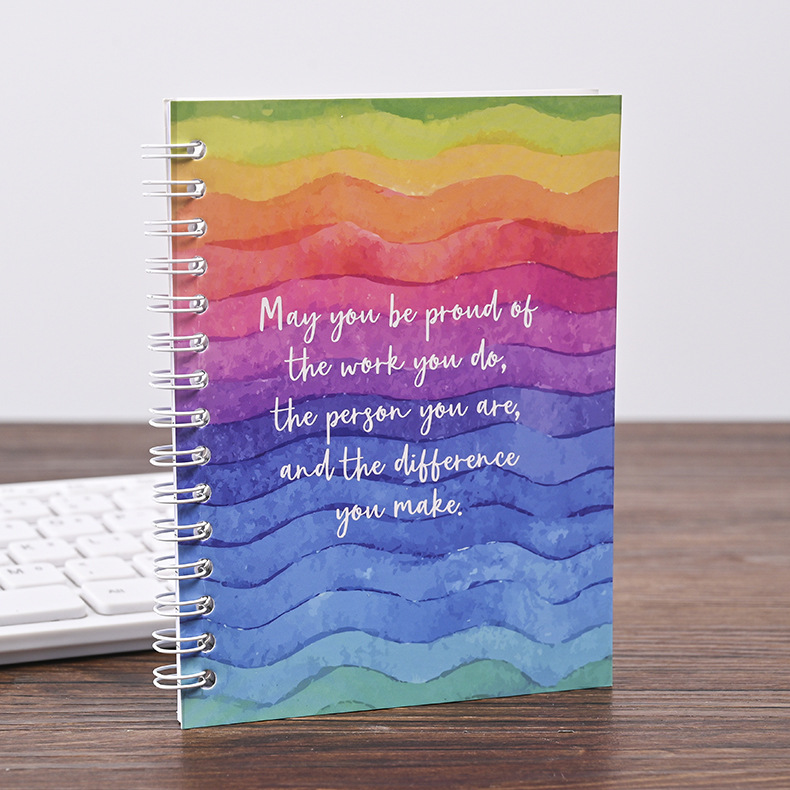 May you be proud of
the work you do,
the person you are,
and the difference
you make.